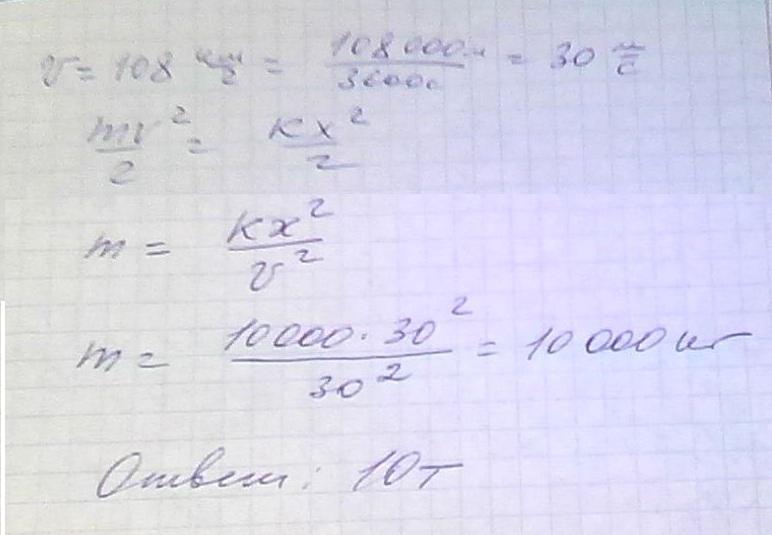 v = 108 км/г = 108 000м/3600с = 30 м/с
mv²/2 = kx²/2
m = kx²/v²
m = 10000·30²/30² = 10 000 кг
Ответ: 10т